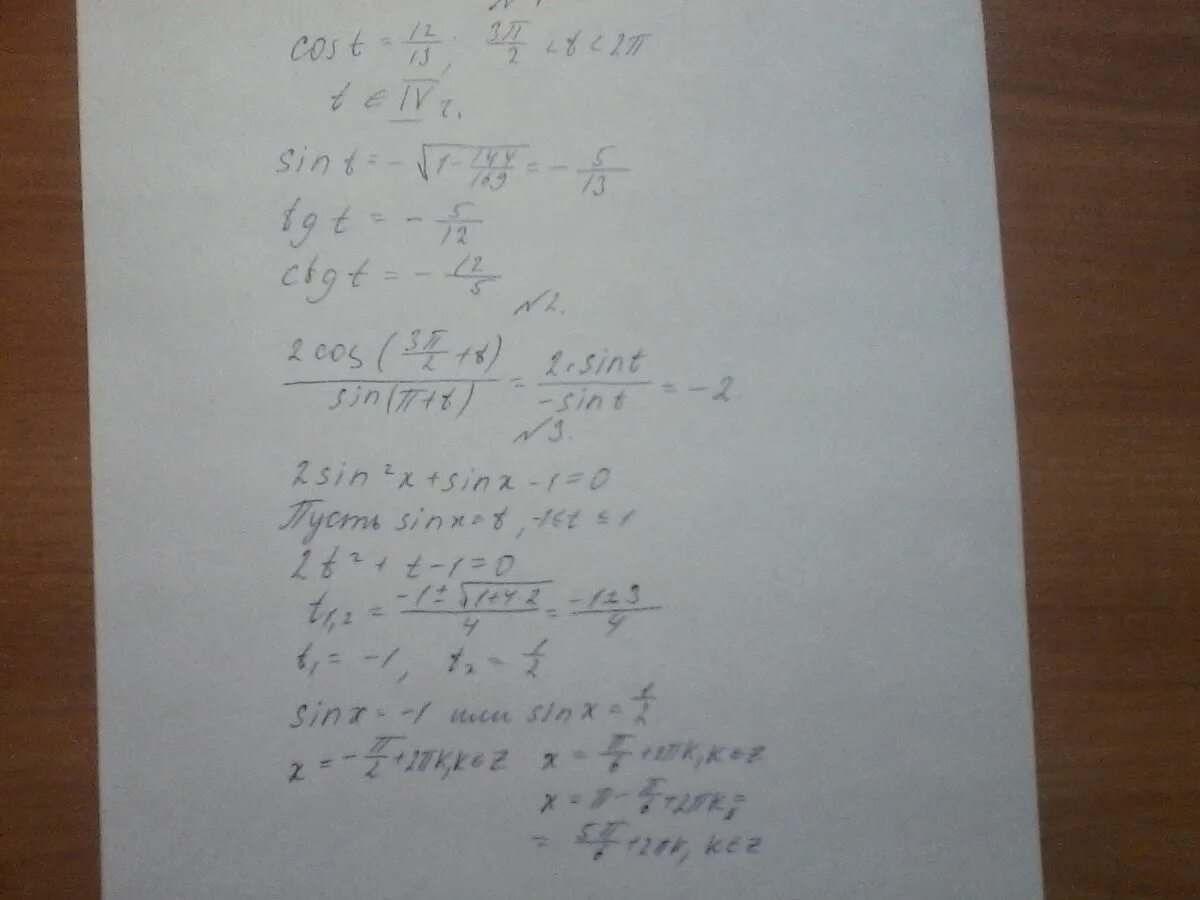 cos t = 12/13, 3π/2 < t < 2π
t ∈ IV ч.
sin t = -√(1 - 144/169) = - 5/13
tg t = - 5/12
ctg t = - 12/5
№2.
2 cos (3π/2 + t) / sin(π + t) = 2 · sin t / - sin t = -2
№3.
2 sin²x + sin x - 1 = 0
Пусть sin x = t, -1 ≤ t ≤ 1
2t² + t - 1 = 0
t1,2 = (-1 ± √(1+4·2)) / 4 = (-1 ± 3) / 4
t1 = -1, t2 = 1/2
sin x = -1 или sin x = 1/2
x = - π/2 + 2πk, k ∈ Z x = π/6 + 2πk, k ∈ Z
x = π - π/6 + 2πk =
= 5π/6 + 2πk, k ∈ Z